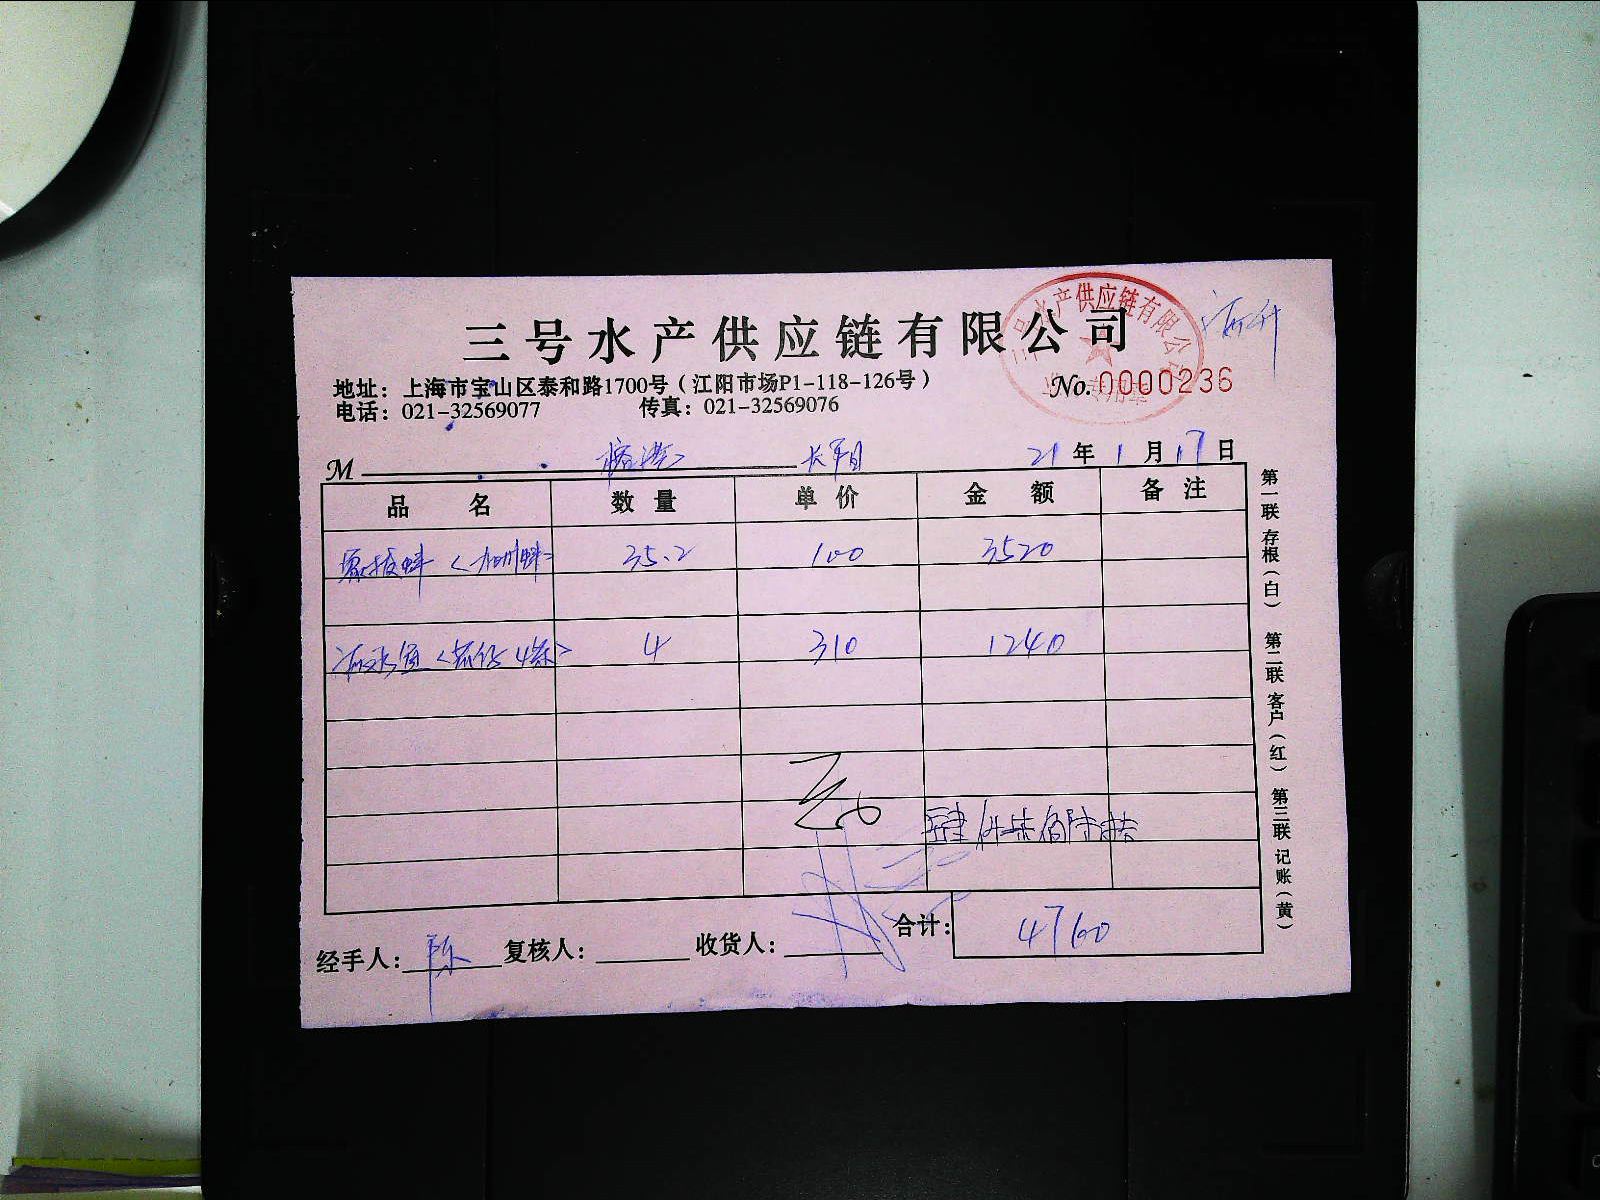 三号水产供应链有限公司
水产供应链有限公
地址：上海市宝山区泰和路1700号（江阳市场P1-118-126号）
No. 0000236
电话：021-32569077 传真：021-32569076
M 21 年 1 月 17 日
品名 数量 单价 金额 备注
象拔蚌 35.2 100 3520
4 310 1240
肆仟柒佰陆拾
合计： 4760
经手人： 陈 复核人： 收货人：
第一联 存根（白） 第二联 客户（红） 第三联 记账（黄）